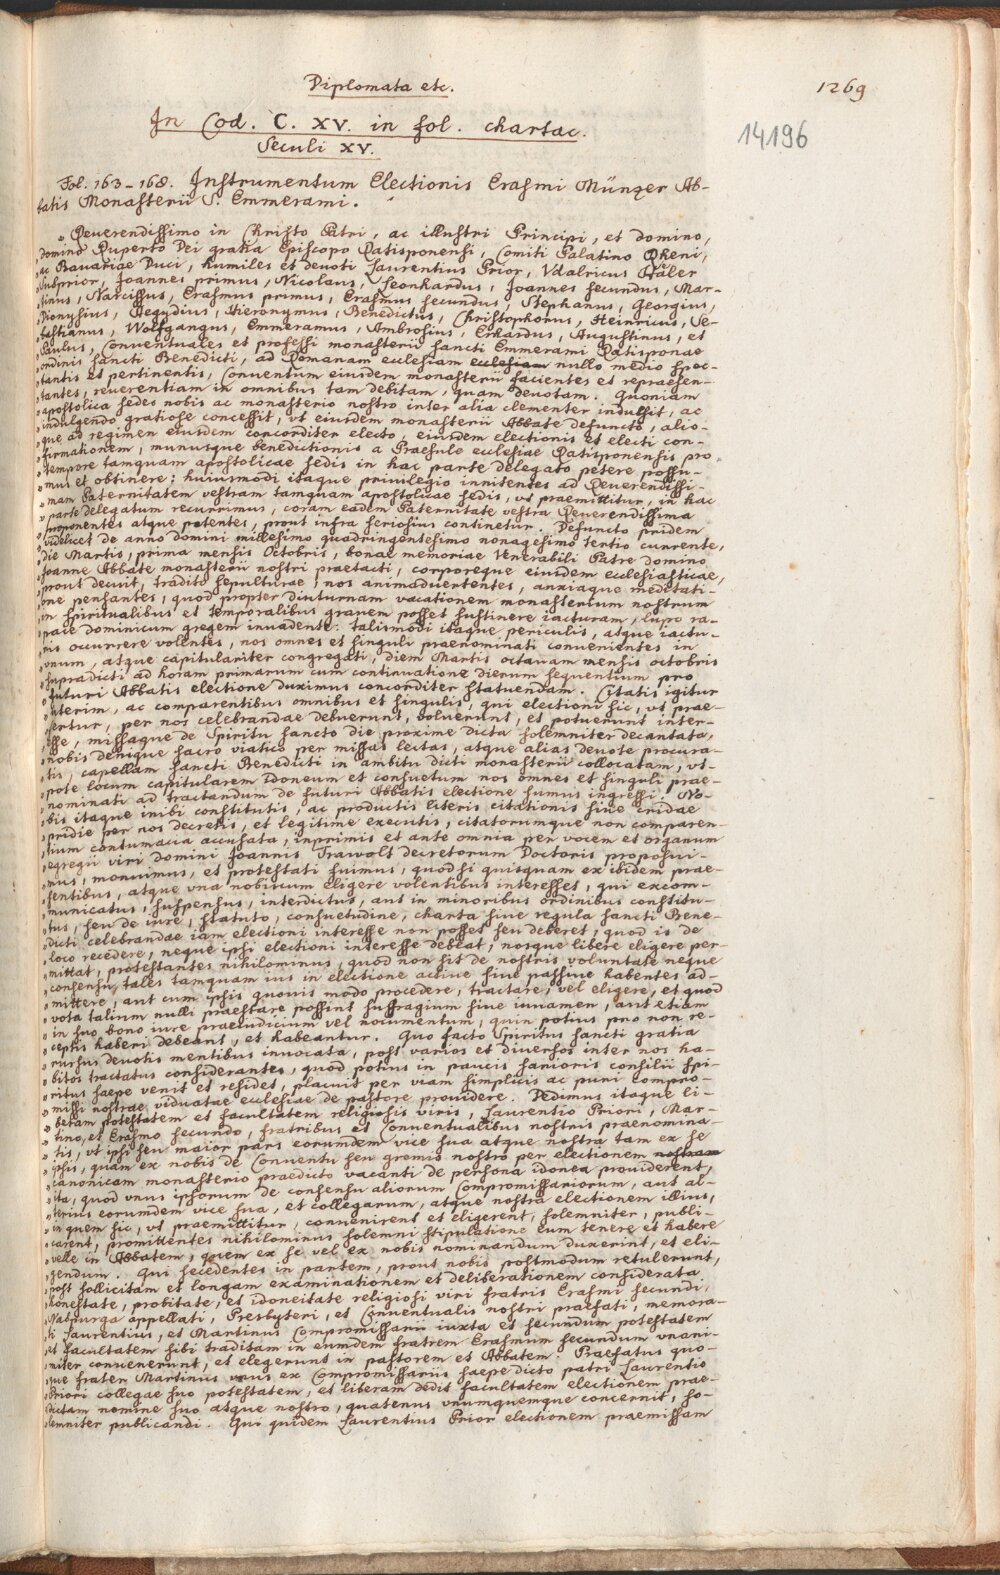 Diplomata etc.
1269
In Cod. C. XV. in fol. chartac.
14196
Seculi XV.
Fol. 163–168. Instrumentum Electionis Erasmi Münzer Ab-
batis Monasterii S. Emmerami.
„Reuerendissimo in Christo Patri, ac illustri Principi, et domino,
domino Ruperto Dei gratia Episcopo Ratisponensi, Comiti Palatino Rheni,
ac Bauariae Duci, humiles et deuoti Laurentius Prior, Vdalricus
Subprior, Joannes primus, Nicolaus, Leonhardus, Joannes secundus, Mar-
tinus, Narcissus, Erasmus primus, Erasmus secundus, Stephanus, Georgius,
Dionysius, Aegydius, Hieronymus, Benedictus, Christophorus, Heinricus, Se-
bastianus, Wolfgangus, Emmeramus, Ambrosius, Erhardus, Augustinus, et
Paulus, Conuentuales et professi monasterii sancti Emmerami Ratisponae
ordinis sancti Benedicti, ad Romanam ecclesiam ecclesiam nullo medio spec-
tantis et pertinentis, Conuentum eiusdem monasterii facientes et repraesen-
tantes, reuerentiam in omnibus tam debitam, quam deuotam. Quoniam
apostolica sedes nobis ac monasterio nostro inter alia clementer indulsit, ac
indulgendo gratiose concessit, vt eiusdem monasterii Abbate defuncto, alio-
que ad regimen eiusdem concorditer electo, eiusdem electionis et electi con-
firmationem, munusque benedictionis a Praesule ecclesiae Ratisponensis pro
tempore tamquam apostolicae sedis in hac parte delegato petere possu-
mus et obtinere; huiusmodi itaque priuilegio innitentes ad Reuerendissi-
mam Paternitatem vestram tamquam apostolicae sedis, vt praemittitur, in hac
parte delegatum recurrimus, coram eadem Paternitate vestra Reuerendissima
proponentes atque petentes, prout infra seriosius continetur. Defuncto pridem
videlicet de anno domini millesimo quadringentesimo nonagesimo tertio currente,
die Martis, prima mensis Octobris, bonae memoriae Venerabili Patre domino
Joanne Abbate monasterii nostri praetacti, corporeque eiusdem ecclesiasticae,
prout decuit, tradito sepulturae, nos animaduertentes, anxiaque meditati-
one pensantes, quod propter diuturnam vacationem monasterium nostrum
in spiritualibus et temporalibus grauem posset sustinere iacturam, lupo ra-
pace dominicum gregem inuadente: talismodi itaque periculis, atque iactu-
ris occurrere volentes, nos omnes et singuli praenominati conuenientes in
vnum, atque capitulariter congregati, diem Martis octauam mensis octobris
supradicti ad horam primarum cum continuatione dierum sequentium pro
futuri Abbatis electione duximus concorditer statuendam. Citatis igitur
interim, ac comparentibus omnibus et singulis, qui electioni sic, vt prae-
fertur, per nos celebrandae debuerunt, voluerunt, et potuerunt inter-
esse, missaque de Spiritu sancto die proxime dicta solemniter decantata,
nobis denique sacro viatico per missas lectas, atque alias deuote procura-
tis, capellam sancti Benedicti in ambitu dicti monasterii collocatam, vt-
pote locum capitularem idoneum et consuetum nos omnes et singuli prae-
nominati ad tractandum de futuri Abbatis electione sumus ingressi. No-
bis itaque inibi constitutis, ac productis literis citationis siue cridae
pridie per nos decretis, et legitime executis, citatorumque non comparen-
tium contumacia accusata, inprimis et ante omnia per vocem et organum
egregii viri domini Joannis Trawolt decretorum Doctoris proposui-
mus, monuimus, et protestati fuimus, quod si quisquam ex ibidem prae-
sentibus, atque vna nobiscum eligere volentibus interesset, qui excom-
municatus, suspensus, interdictus, aut in minoribus ordinibus constitu-
tus, seu de iure, statuto, consuetudine, charta siue regula sancti Bene-
dicti celebrandae iam electioni interesse non posset seu deberet, quod is de
loco recedere, neque ipsi electioni interesse debeat, nosque libere eligere per-
mittat, protestantes nihilominus, quod non sit de nostris voluntate neque
consensu, tales tamquam ius in electione actiue siue passiue habentes ad-
mittere, aut cum ipsis quouis modo procedere, tractare, vel eligere, et quod
vota talium nulli praestare possint suffragium siue iuuamen, aut etiam
in suo bono iure praeiudicium vel nocumentum, quin potius pro non re-
ceptis haberi debeant, et habeantur. Quo facto Spiritus sancti gratia
rursus deuotis mentibus inuocata, post varios et diuersos inter nos ha-
bitos tractatus considerantes, quod potius in paucis sanioris consilii spi-
ritus saepe venit et residet, placuit per viam simplicis ac puri compro-
missi nostrae viduatae ecclesiae de pastore prouidere. Dedimus itaque li-
beram potestatem et facultatem religiosis viris, Laurentio Priori, Mar-
tino, et Erasmo secundo, fratribus et Conuentualibus nostris praenomina-
tis, vt ipsi seu maior pars eorumdem vice sua atque nostra tam ex se
ipsis, quam ex nobis de Conuentu seu gremio nostro per electionem nostram
canonicam monasterio praedicto vacanti de persona idonea prouiderent,
ita, quod vnus ipsorum de consensu aliorum Compromissariorum, aut al-
terius eorumdem vice sua, et collegarum, atque nostra electionem illius,
in quem sic, vt praemittitur, conuenirent et eligerent, solemniter, publi-
carent, promittentes nihilominus solemni stipulatione eum tenere et habere
velle in Abbatem, quem ex se vel ex nobis nominandum duxerint, et eli-
gendum. Qui secedentes in partem, prout nobis postmodum retulerunt,
post sollicitam et longam examinationem et deliberationem considerata
honestate, probitate, et idoneitate religiosi viri fratris Erasmi secundi,
Nabpurga appellati, Presbyteri, et Conuentualis nostri praefati, memora-
ti Laurentius, et Martinus Compromissarii iuxta et secundum potestatem
et facultatem sibi traditam in eumdem fratrem Erasmum secundum vnani-
miter conuenerunt, et elegerunt in pastorem et Abbatem. Praefatus quo-
que frater Martinus vnus ex Compromissariis saepe dicto patri Laurentio
Priori collegae suo potestatem, et liberam dedit facultatem electionem prae-
dictam nomine suo atque nostro, quatenus vnumquemque concernit, so-
lemniter publicandi. Qui quidem Laurentius Prior electionem praemissam